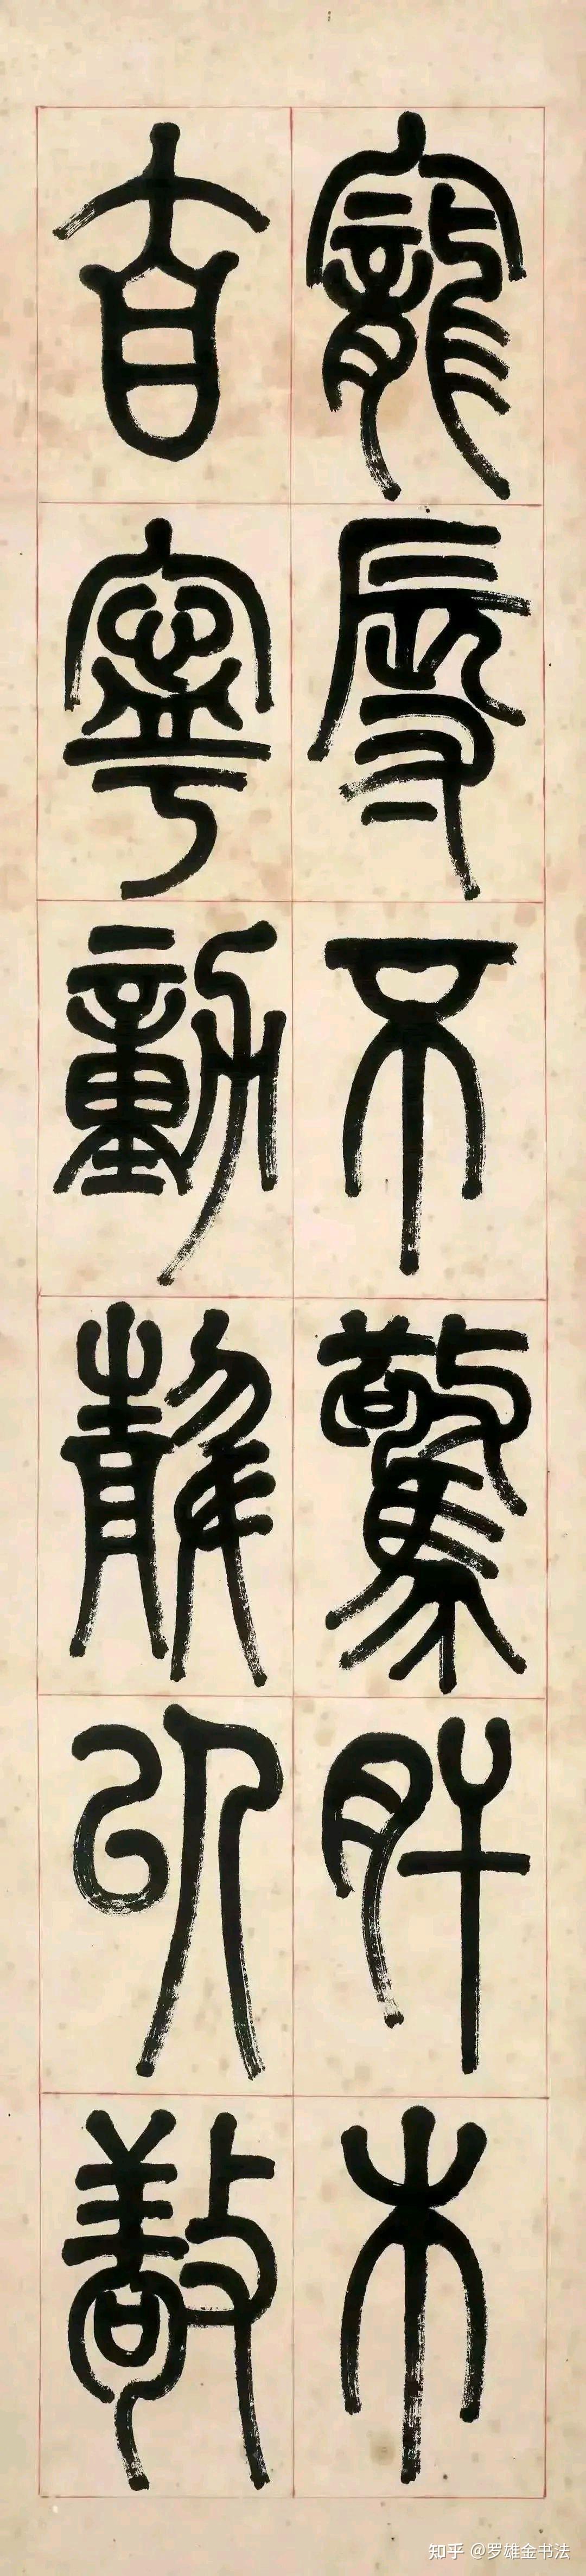 寵辱不驚肝木
自寧動靜以敬
知乎 @罗雄金书法